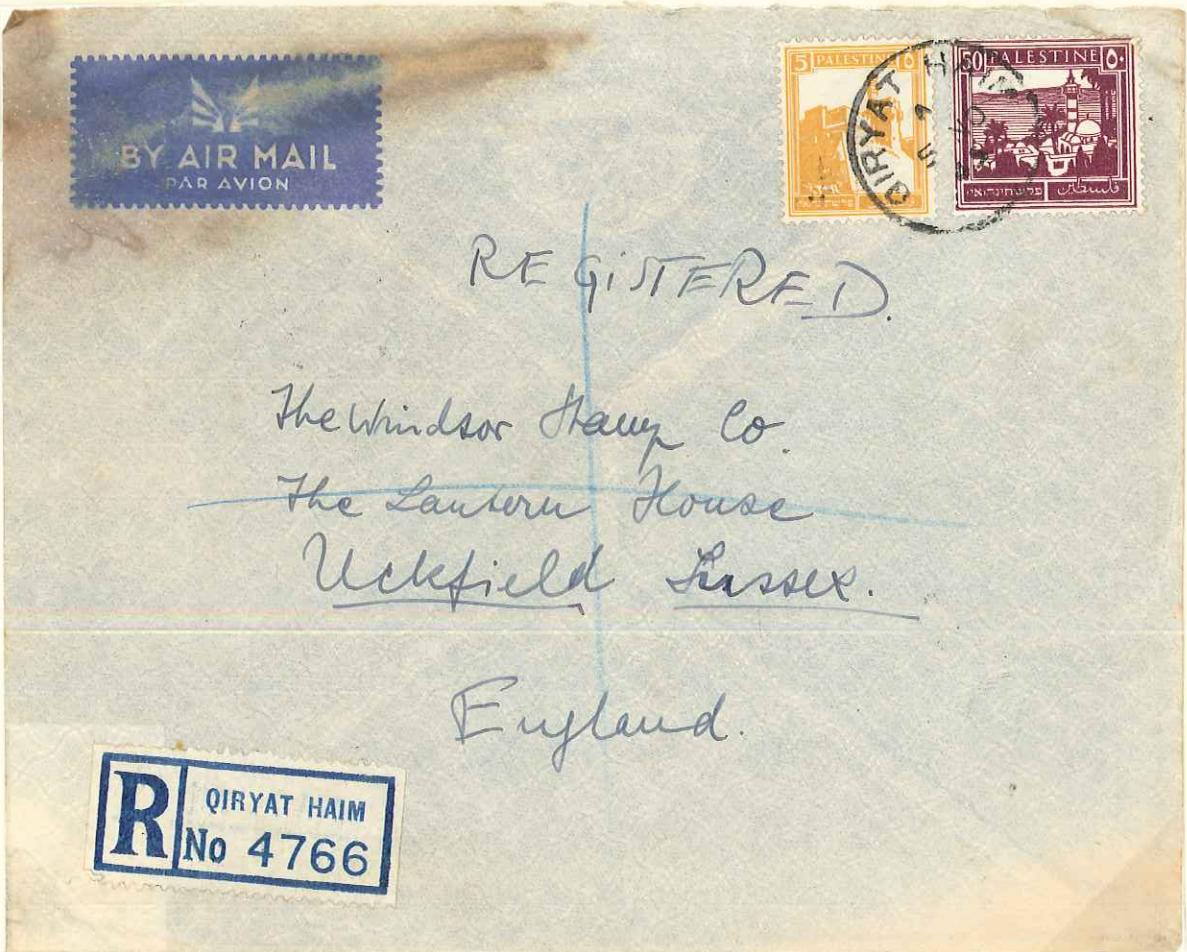 BY AIR MAIL
PAR AVION
5 PALESTINE ٥
50 PALESTINE ٥٠
QIRYAT HAIM
فلسطين
REGISTERED.
The Windsor Stamp Co.
The Lantern House
Uckfield Sussex.
England.
R
QIRYAT HAIM
No 4766